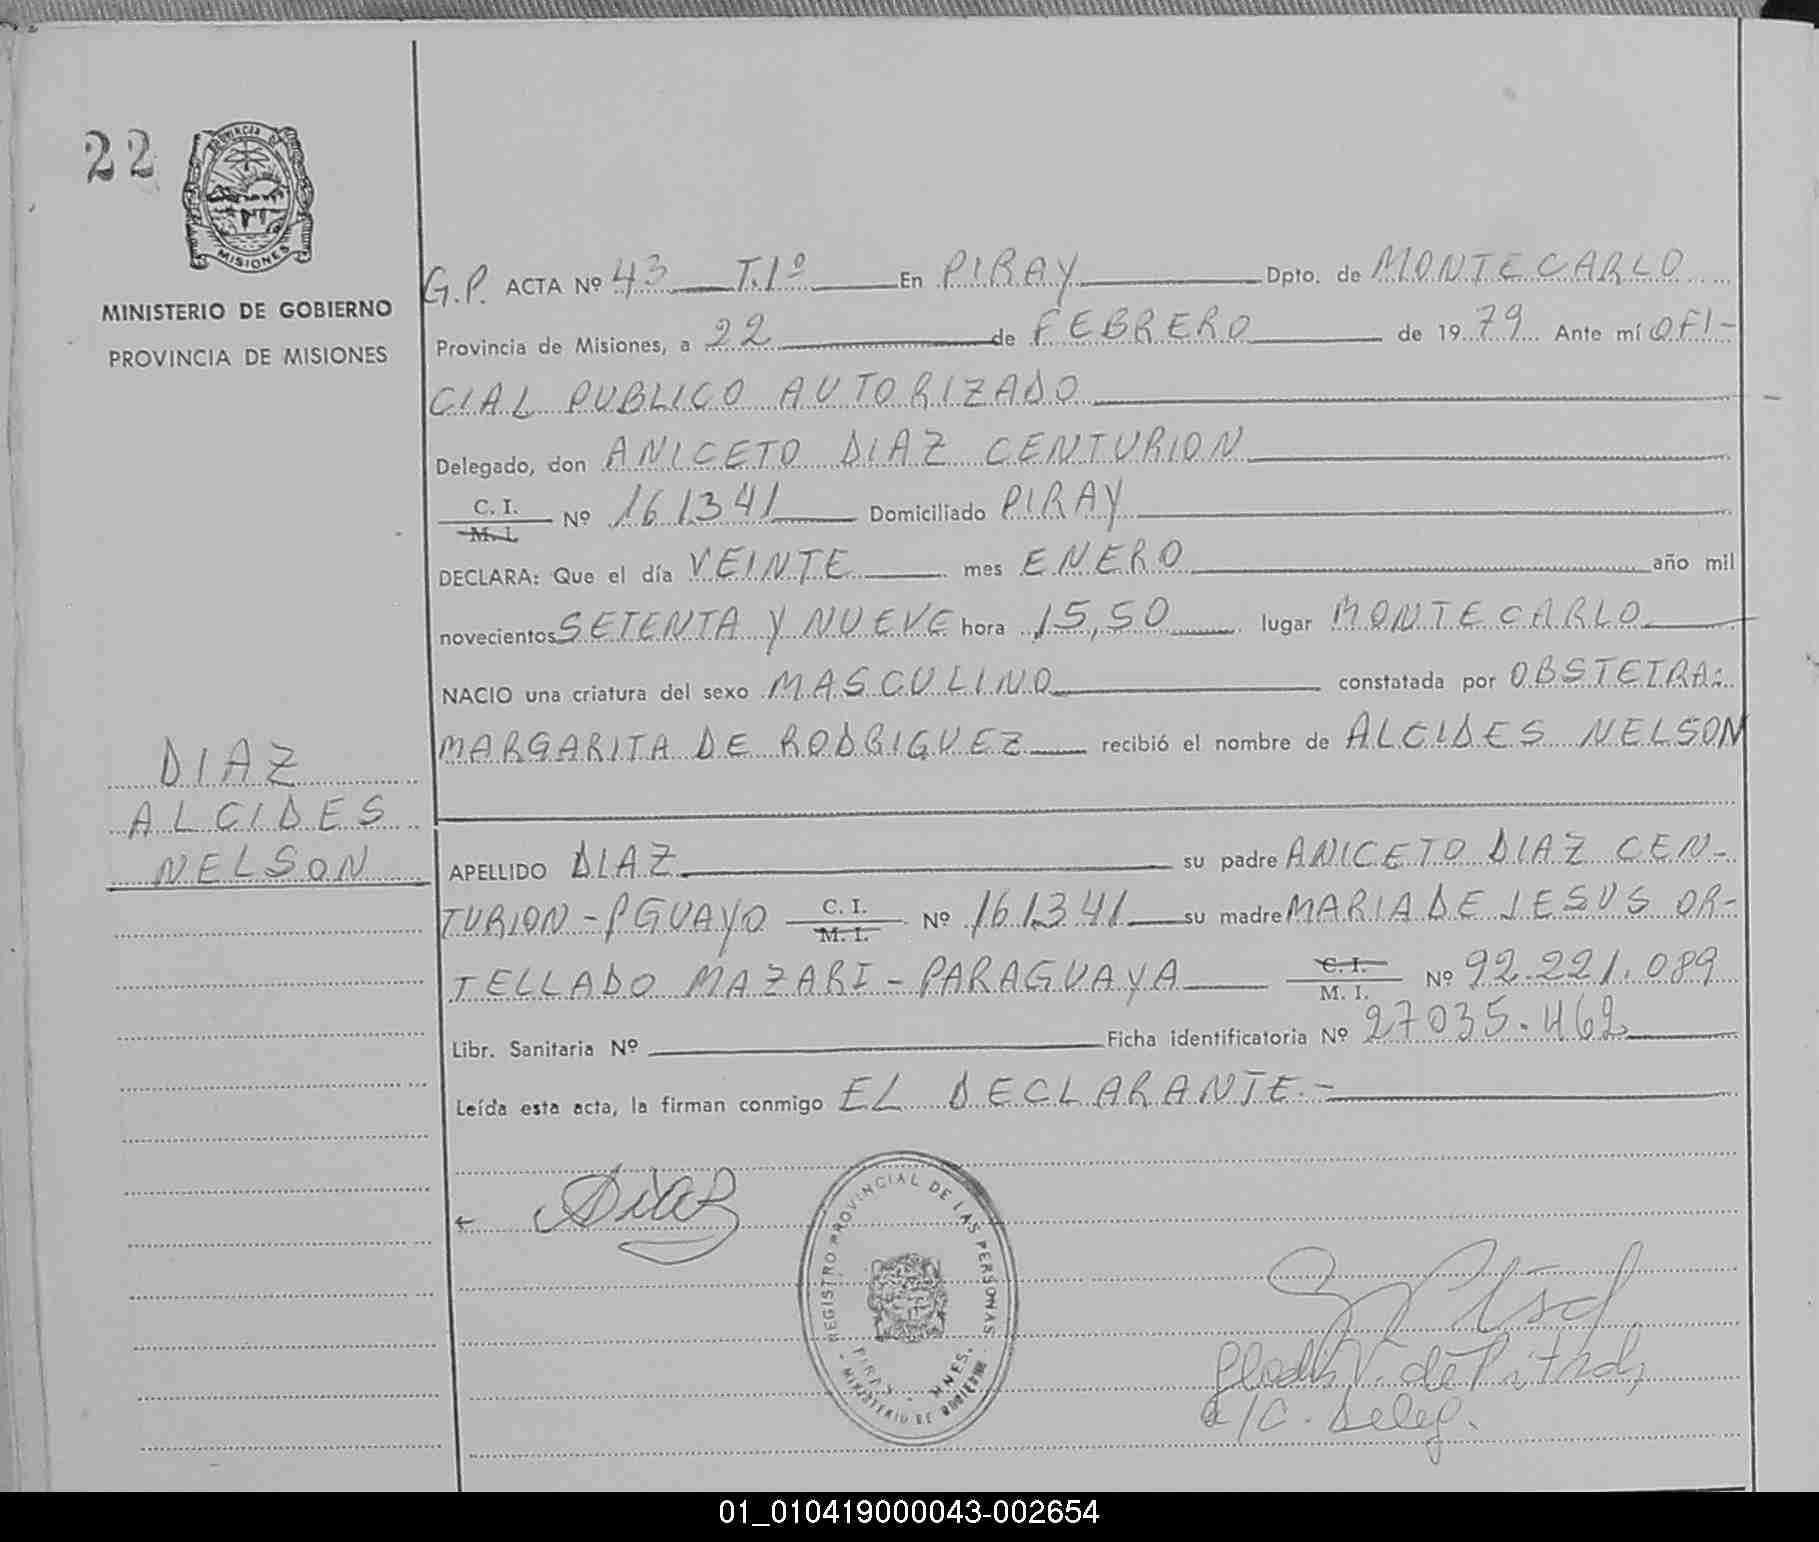 22
PROVINCIA DE
MISIONES
MINISTERIO DE GOBIERNO
PROVINCIA DE MISIONES
G.P. ACTA Nº 43 T.1º En PIRAY Dpto. de MONTECARLO
Provincia de Misiones, a 22 de FEBRERO de 1979 Ante mí OFI-
CIAL PUBLICO AUTORIZADO
Delegado, don ANICETO DIAZ CENTURION
C. I.
M. I. Nº 161341 Domiciliado PIRAY
DECLARA: Que el día VEINTE mes ENERO año mil
novecientos SETENTA Y NUEVE hora 15,50 lugar MONTECARLO
NACIO una criatura del sexo MASCULINO constatada por OBSTETRA:
MARGARITA DE RODRIGUEZ recibió el nombre de ALCIDES NELSON
DIAZ
ALCIDES
NELSON
APELLIDO DIAZ su padre ANICETO DIAZ CEN-
TURION - PGUAYO C. I. M. I. Nº 161341 su madre MARIA DE JESUS OR-
TELLADO MAZARI - PARAGUAYA C. I. M. I. Nº 92.221.089
Libr. Sanitaria Nº Ficha identificatoria Nº 27035.462
Leída esta acta, la firman conmigo EL DECLARANTE.-
Diaz
REGISTRO PROVINCIAL DE LAS PERSONAS
PIRAY - MNES.
- MINISTERIO DE GOBIERNO -
a/c. Deleg.
01_010419000043-002654